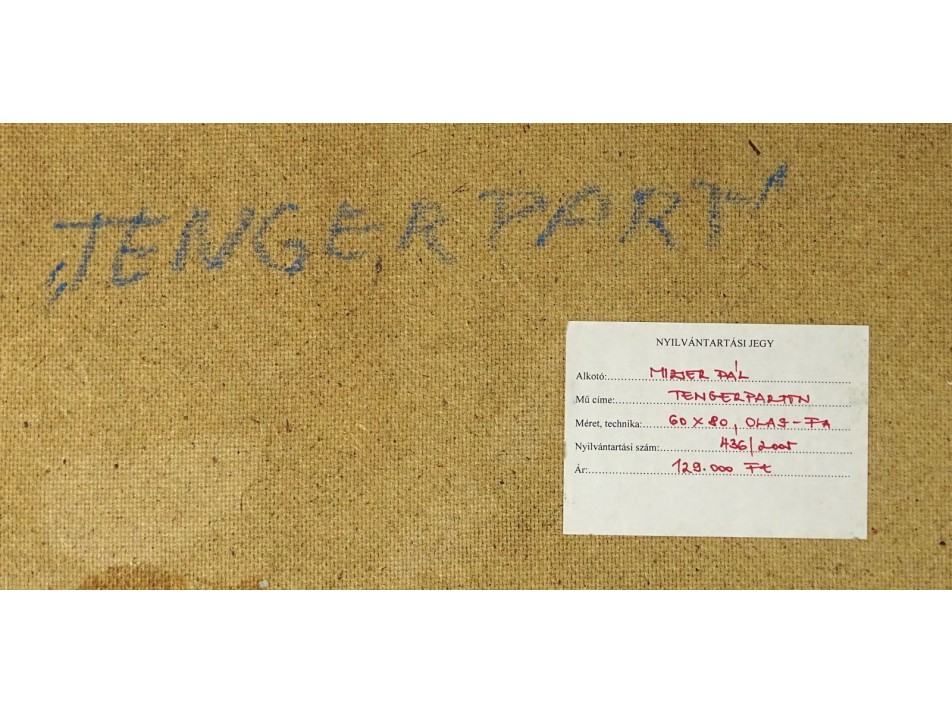 „TENGERPART"
NYILVÁNTARTÁSI JEGY
Alkotó: MIZSER PÁL
Mű címe: TENGERPARTON
Méret, technika: 60 x 80, OLAJ-FA
Nyilvántartási szám: 436/2005
Ár: 129.000 Ft